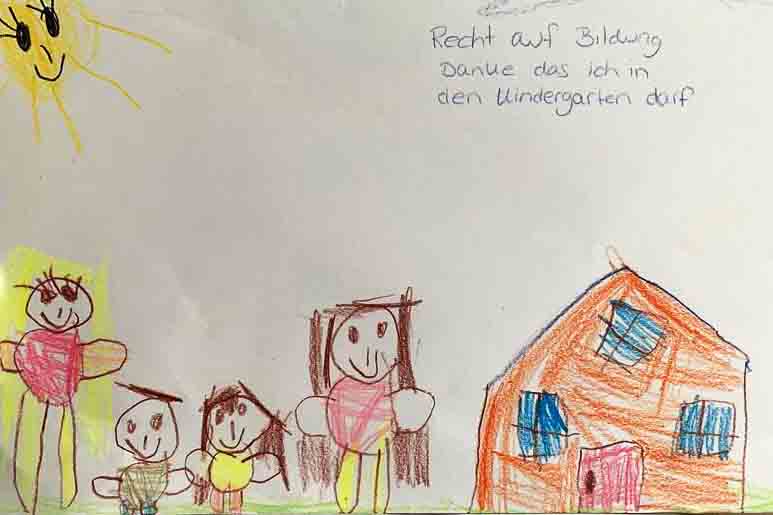 Recht auf Bildung
Danke das ich in
den Kindergarten darf